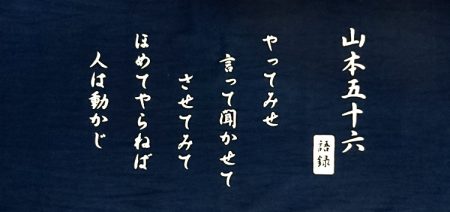 山本五十六
語録
やってみせ
言って聞かせて
させてみて
ほめてやらねば
人は動かじ